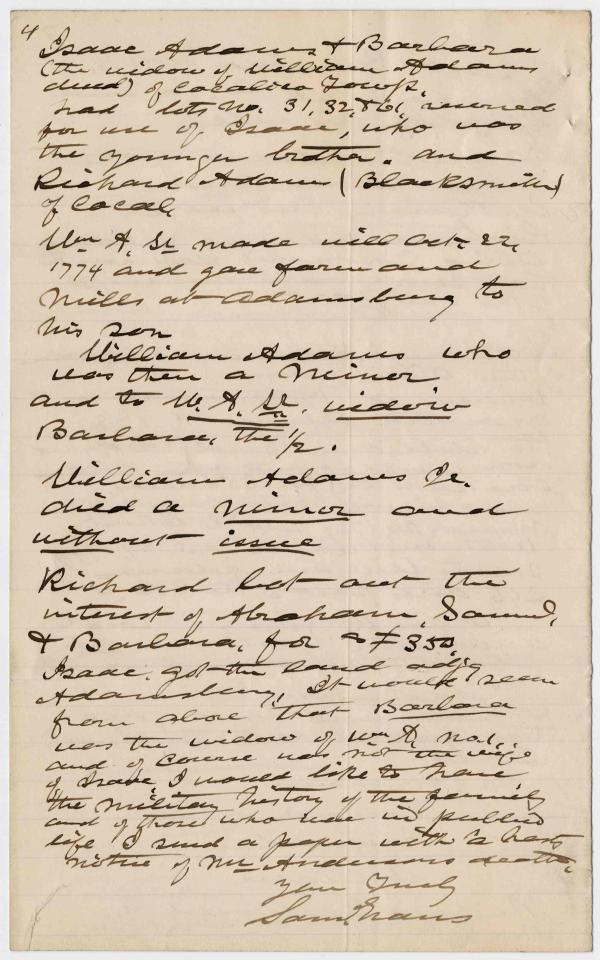 4
Isaac Adams & Barbara
(the widow of William Adams
decd) of Cocalico Towp.
had lots No. 31, 32, & 61, reserved
for use of Isaac, who was
the younger brother. and
Richard Adams (Blacksmith)
of Cocal.
Wm A. Sr made will Oct. 22,
1774 and gave farm and
Mills at Adamsburg to
his son
William Adams who
was then a Minor
and to W. A. Sr. widow
Barbara, the 1/2.
William Adams Jr.
died a minor and
without issue
Richard bot out the
interest of Abraham, Samuel,
& Barbara, for £350,
Isaac, got the land adjg
Adamsburg, It would seem
from above that Barbara
was the widow of Wm A, No 1,
and of course was not the wife
of Isaac I would like to have
the military history of the family
and of those who were in public
life I send a paper with a
notice of Mr Andersons death.
Your Truly
Saml Evans